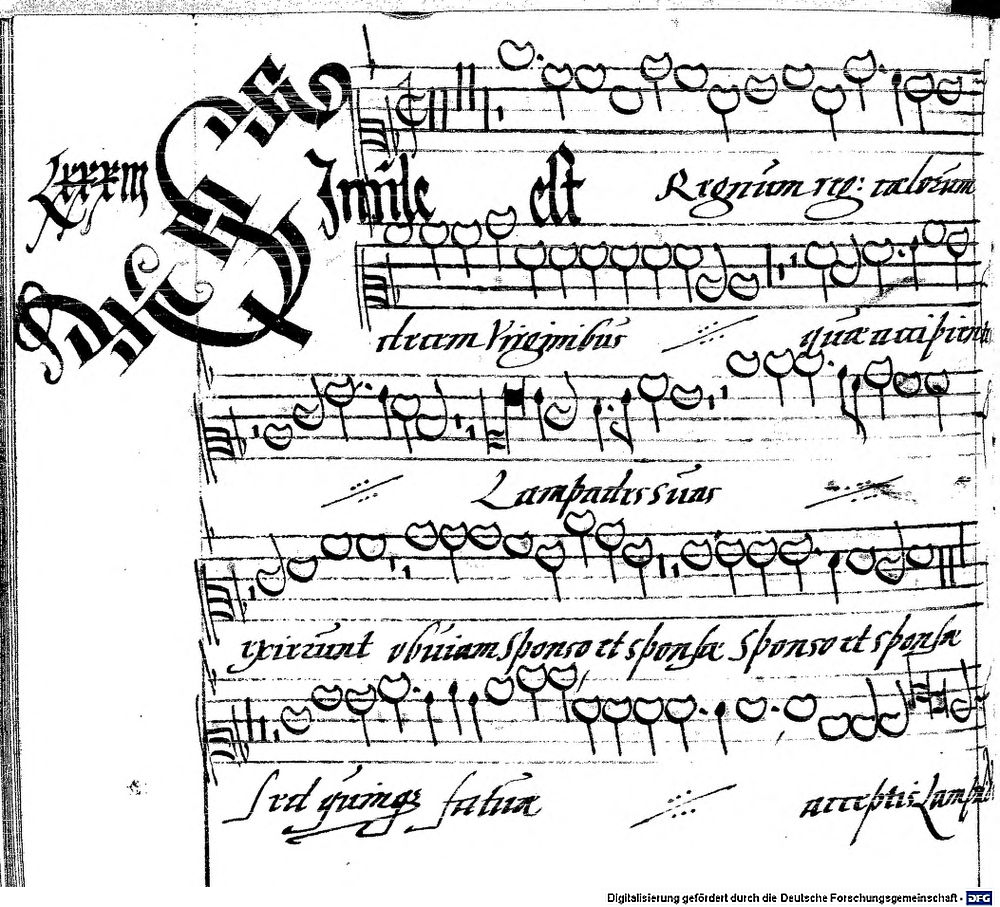 Lxxxiij
Simile est Regnum reg: cœlorum
decem Virginibus quæ accipient
Lampades suas
exierunt obuiam Sponso et sponsæ Sponso et sponsæ
Sed quinqꝫ fatuæ acceptis Lampad
Digitalisierung gefördert durch die Deutsche Forschungsgemeinschaft - DFG